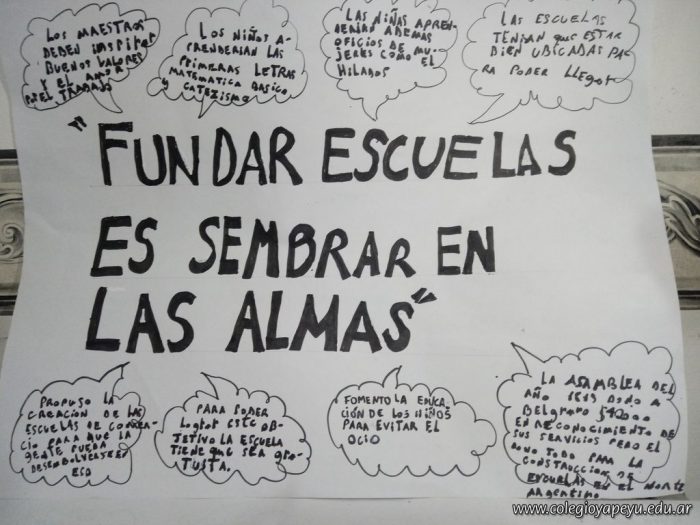 LOS MAESTROS
DEBEN inspirar
BUENOS VALORES
Y EL AMOR
POR EL TRABAJO
LOS NIÑOS A-
PRENDERIAN LAS
PRIMERAS LETRAS
MATEMATICA BASICA
Y CATEZISMO
LAS NIÑAS APREN-
DERIAN ADEMAS
OFICIOS DE MU-
JERES COMO EL
HILADOS
LAS ESCUELAS
TENIAN que ESTAR
BIEN UBICADAS PA-
RA PODER LLEGAR
"FUNDAR ESCUELAS
ES SEMBRAR EN
LAS ALMAS"
PROPUSO LA
CREACION DE LAS
ESCUELAS DE COMER-
CIO PARA QUE LA
GENTE PUEDA
DESENVOLVERSE EN
ESO
PARA PODER
LOGRAR ESTE OB-
JETIVO LA ESCUELA
TIENE QUE SER GRA-
TUITA.
FOMENTO LA EDUCA-
CIÓN DE LOS NIÑOS
PARA EVITAR EL
OCIO
LA ASAMBLEA DEL
AÑO 1813 DONO A
BELGRANO $40000
EN RECONOCIMIENTO DE
SUS SERVICIOS PERO EL
DONO TODO PARA LA
CONSTRUCCION DE
ESCUELAS EN EL NORTE
ARGENTINO
www.colegioyapeyu.edu.ar